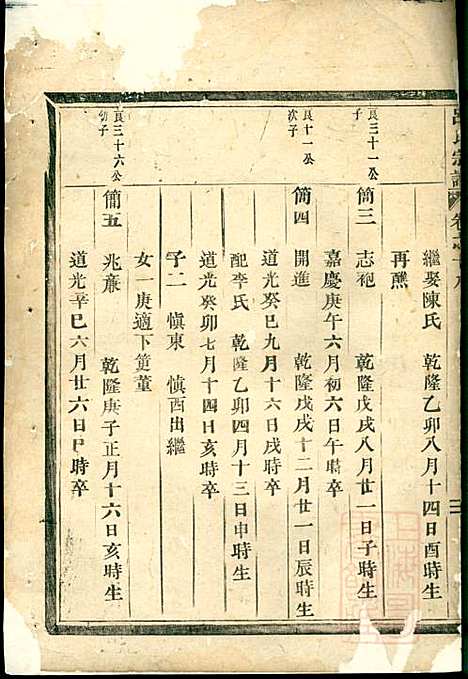 呂氏宗譜
繼娶陳氏 乾隆乙卯八月十四日酉時生
再醮
良三十一公
子
簡三 志袍 乾隆戊戌八月廿一日子時生
嘉慶庚午六月初六日午時卒
良十一公
次子
簡四 開進 乾隆戊戌十二月廿一日辰時生
道光癸巳九月十六日戌時卒
配李氏 乾隆乙卯四月十三日申時生
道光癸卯七月十四日亥時卒
子二 愼東 愼西出繼
女一庚適下筻董
良三十六公
幼子
簡五 兆蔴 乾隆庚子正月十六日亥時生
道光辛巳六月廿六日巳時卒